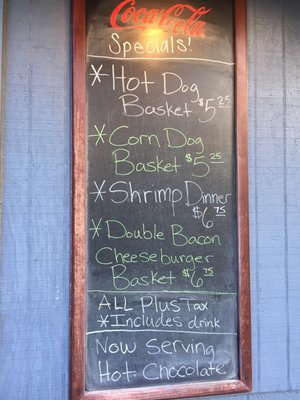 Coca-Cola
Specials!
*Hot Dog
Basket $5.25
*Corn Dog
Basket $5.25
*Shrimp Dinner
$6.75
*Double Bacon
Cheeseburger
Basket $6.75
ALL Plus Tax
*Includes drink
Now Serving
Hot: Chocolate